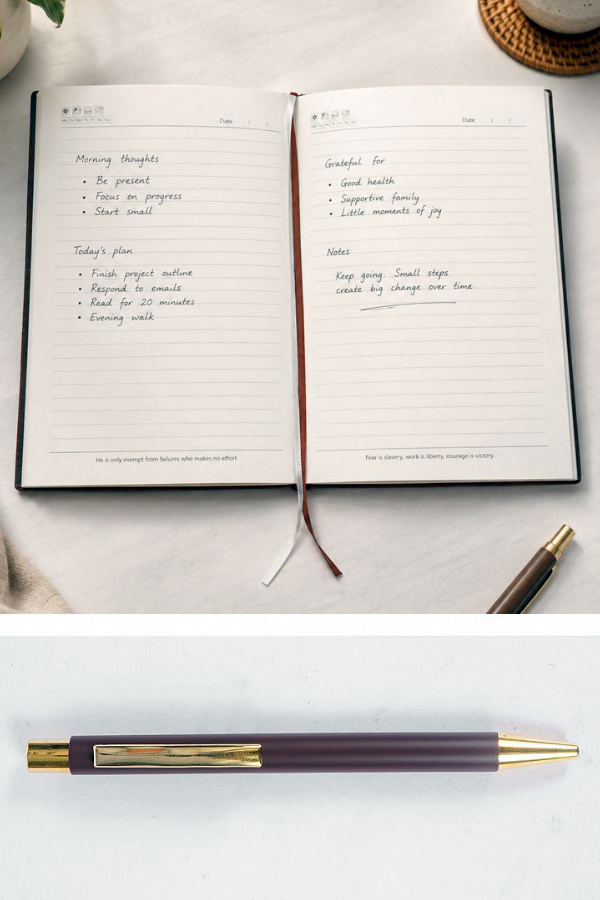 Date / /
Morning thoughts
• Be present
• Focus on progress
• Start small
Today's plan
• Finish project outline
• Respond to emails
• Read for 20 minutes
• Evening walk
He is only exempt from failures who makes no effort
Date / /
Grateful for
• Good health
• Supportive family
• Little moments of joy
Notes
Keep going. Small steps
create big change over time.
Fear is slavery, work is liberty, courage is victory.